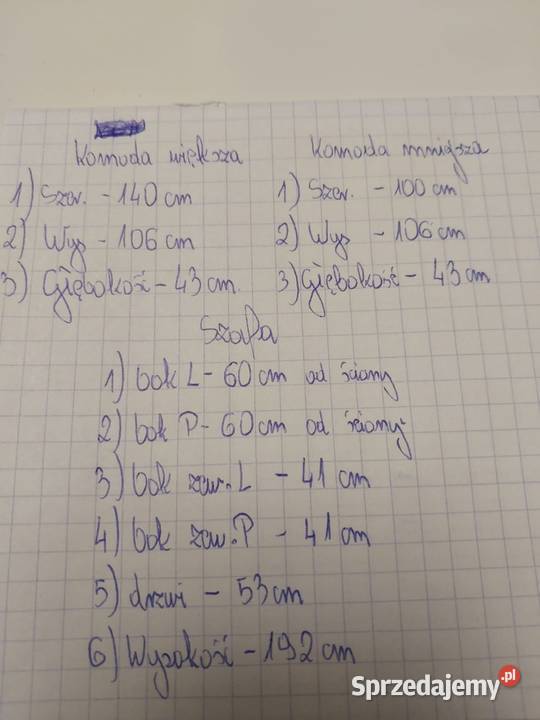 Komoda większa
1) Szer. - 140 cm
2) Wys - 106 cm
3) Głębokość - 43 cm.
Komoda mniejsza
1) Szer. - 100 cm
2) Wys - 106 cm
3) Głębokość - 43 cm
Szafa
1) bok L - 60 cm od ściany
2) bok P - 60 cm od ściany
3) bok zew. L - 41 cm
4) bok zew. P - 41 cm
5) drzwi - 53 cm
6) Wysokość - 192 cm
Sprzedajemy.pl